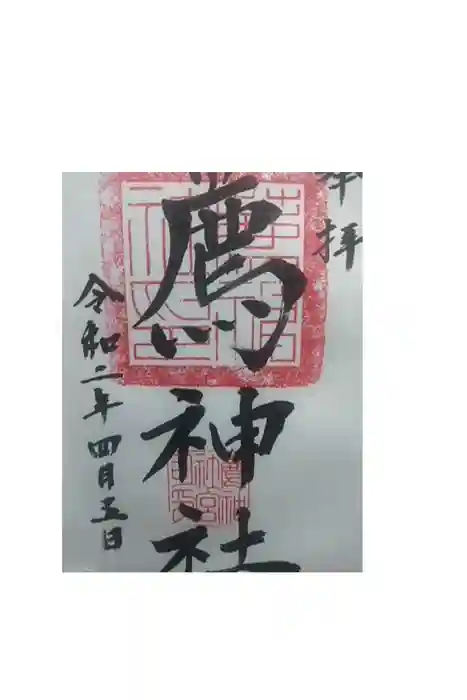 奉拝
薦神社
令和二年四月五日